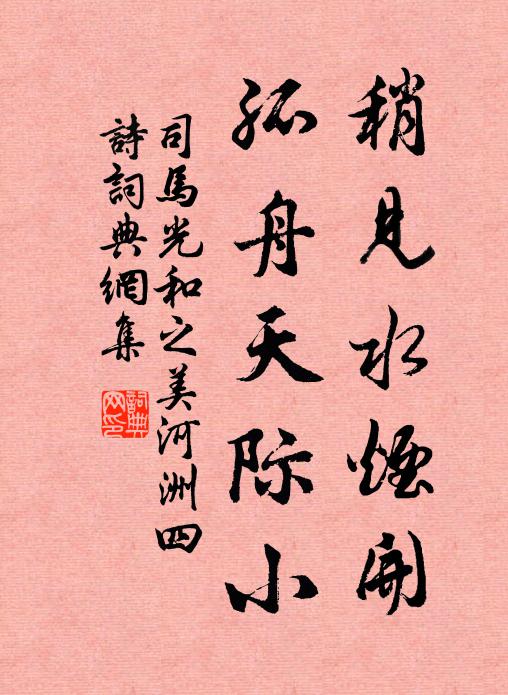 稍見水煙開
孤舟天际小
司馬光和之美河洲四
詩詞典網集
詞典
网印